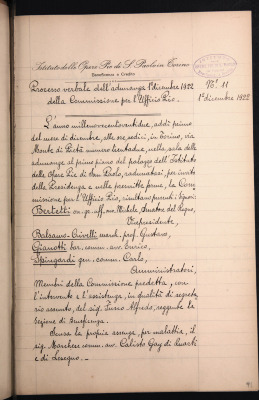 Istituto delle Opere Pie di S. Paolo in Torino
Beneficenza e Credito
Processo verbale dell'adunanza 1° dicembre 1922
della Commissione per l'Ufficio Pio.
N° 11
1° dicembre 1922
L'anno millenovecentoventidue, addì primo
del mese di dicembre, alle ore sedici, in Torino, via
Monte di Pietà numero trentadue, nella sala delle
adunanze al primo piano del palazzo dell'Istituto
delle Opere Pie di San Paolo, radunatasi, per invito
della Presidenza e nelle prescritte forme, la Com
missione per l'Ufficio Pio, sono presenti i signori:
Bertetti gr. uff. avv. Michele, Senatore del Regno,
Vicepresidente,
Balsamo-Crivelli march. prof. Gustavo,
Gianotti bar. comm. avv. Enrico,
Spingardi gen. comm. Carlo,
Amministratori,
Membri della Commissione predetta, con
l'intervento e l'assistenza, in qualità di segreta
rio assunto, del sig. Alfredo, reggente la
Sezione di Beneficenza.
Scusa la propria assenza, per malattia, il
sig. Marchese comm. avv. Calisto Gay di Quarti
e di Lesegno. –